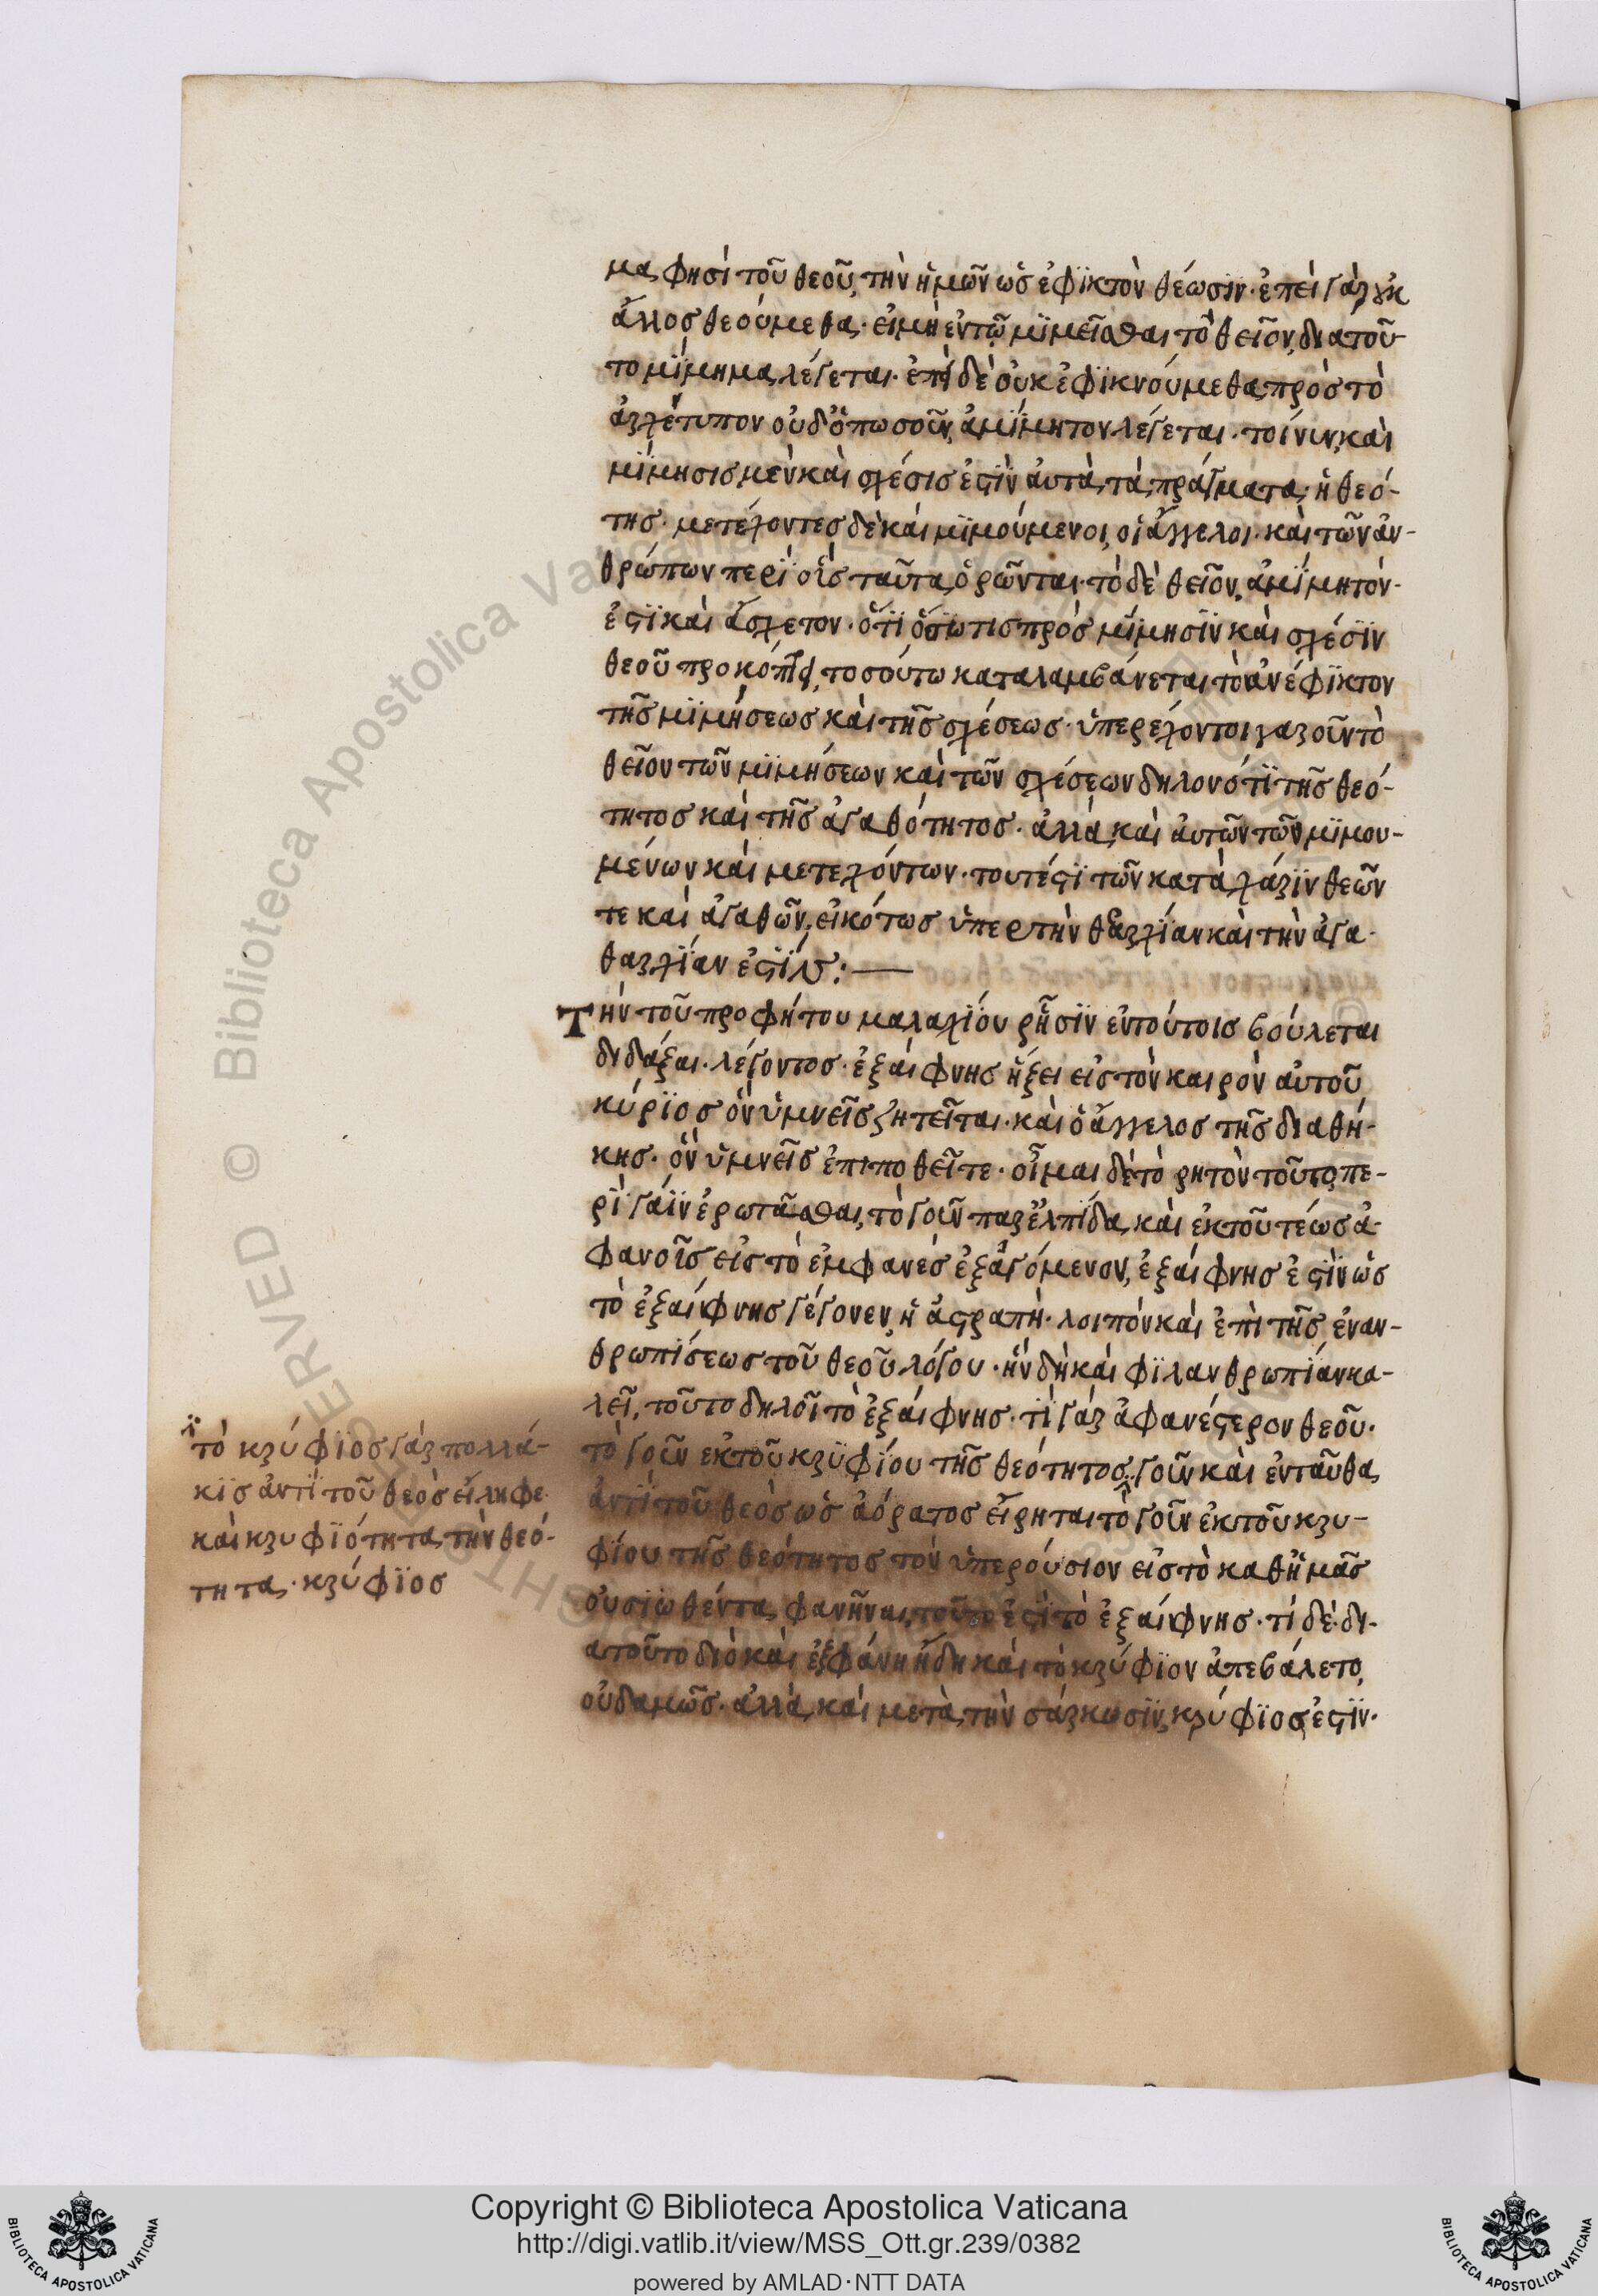 μα φησὶ τοῦ θεοῦ, τὴν ἡμῶν ὡς ἐφϊκτὸν θέωσϊν· ἐπεὶ γὰρ οὐκ
ἄλλως θεούμεθα· εἰ μὴ ἐν τῷ μϊμεῖσθαι τὸ θεῖον, διατοῦ-
το μΐμημα λέγεται· ἐπεὶ δὲ οὐκ ἐφϊκνούμεθα πρὸς τὸ
ἀρχέτυπον οὐδ' ὁπωσοῦν, ἀμΐμητον λέγεται· τοίνυν, καὶ
μΐμησις μὲν καὶ σχέσις ἐστὶν αὐτὰ, τὰ πράγματα· ἡ θεό-
της· μετέχοντες δὲ καὶ μϊμούμενοι, οἱ ἄγγελοι· καὶ τῶν ἀν-
θρώπων περὶ οἷς ταῦτα ὁρῶνται· τὸ δὲ θεῖον, ἀμΐμητόν·
ἐστϊ καὶ ἄσχετον· ὅτϊ ὅσω τις πρὸς μΐμησϊν καὶ σχέσϊν
θεοῦ προκόπτει, τοσούτω καταλαμβάνεται τὸ ἀνέφϊκτον
τῆς μϊμήσεως καὶ τῆς σχέσεως· ὑπερέχοντοι γαροῦν τὸ
θεῖον τῶν μϊμήσεων καὶ τῶν σχέσεων δηλονότϊ τῆς θεό-
τητος καὶ τῆς ἀγαθότητος· ἀλλὰ, καὶ αὐτῶν τῶν μϊμου-
μένων καὶ μετεχόντων· τουτέστϊ τῶν κατὰ χάρϊν θεῶν
τε καὶ ἀγαθῶν, εἰκότως ὑπὲρ τὴν θεαρχΐαν καὶ τὴν ἀγα-
θαρχΐαν ἐστΐν:—
Τὴν τοῦ προφήτου μαλαχΐου ῥῆσϊν ἐν τούτοις βούλεται
διδάξαι· λέγοντος· ἐξαίφνης ἥξει εἰς τὸν καιρὸν αὐτοῦ
κύρϊος ὃν ὑμνεῖς ζητεῖται· καὶ ὁ ἄγγελος τῆς διαθή-
κης· ὃν ὑμνεῖς ἐπιποθεῖτε· οἶμαι δὲ τὸ ῥητὸν τοῦτο πε-
ρὶ γάϊν ἐρωτᾶσθαι, τὸ γοῦν παρ' ἐλπίδα, καὶ ἐκ τοῦ τέως ἀ-
φανοῖς εἰς τὸ ἐμφανὲς ἐξαγόμενον, ἐξαίφνης ἐστὶν ὡς
τὸ ἐξαίφνης γέγονεν, ἡ ἀστραπή· λοιπὸν καὶ ἐπὶ τῆς ἐναν-
θρωπίσεως τοῦ θεοῦ λόγου· ἣν δὴ καὶ φϊλανθρωπίαν κα-
λεῖ, τοῦτο δηλοῖ τὸ ἐξαίφνης· τί γὰρ ἀφανέστερον θεοῦ·
τὸ γοῦν ἐκ τοῦ κρυφίου τῆς θεότητος, γοῦν καὶ ἐνταῦθα,
ἀντὶ τοῦ θεὸς ὡς ἀόρατος εἴρηται τὸ γοῦν ἐκ τοῦ κρυ-
φίου τῆς θεότητος τὸν ὑπερούσιον εἰς τὸ καθ' ἡμᾶς
οὐσϊωθέντα, φανῆναι, τοῦτο ἐστὶ τὸ ἐξαίφνης· τί δὲ· δι-
ατοῦτο διὸ καὶ ἐξεφάνη ἤδη καὶ τὸ κρύφϊον ἀπεβάλετο,
οὐδαμῶς· ἀλλὰ, καὶ μετὰ, τὴν σάρκωσϊν, κρύφϊος ἐστϊν·
τὸ κρύφϊος γὰρ πολλά-
κϊς ἀντὶ τοῦ θεὸς εἴληφε
καὶ κρυφϊότητα, τὴν θεό-
τητα· κρύφϊος
Copyright © Biblioteca Apostolica Vaticana
http://digi.vatlib.it/view/MSS_Ott.gr.239/0382
powered by AMLAD·NTT DATA
BIBLIOTECA APOSTOLICA VATICANA
BIBLIOTECA APOSTOLICA VATICANA